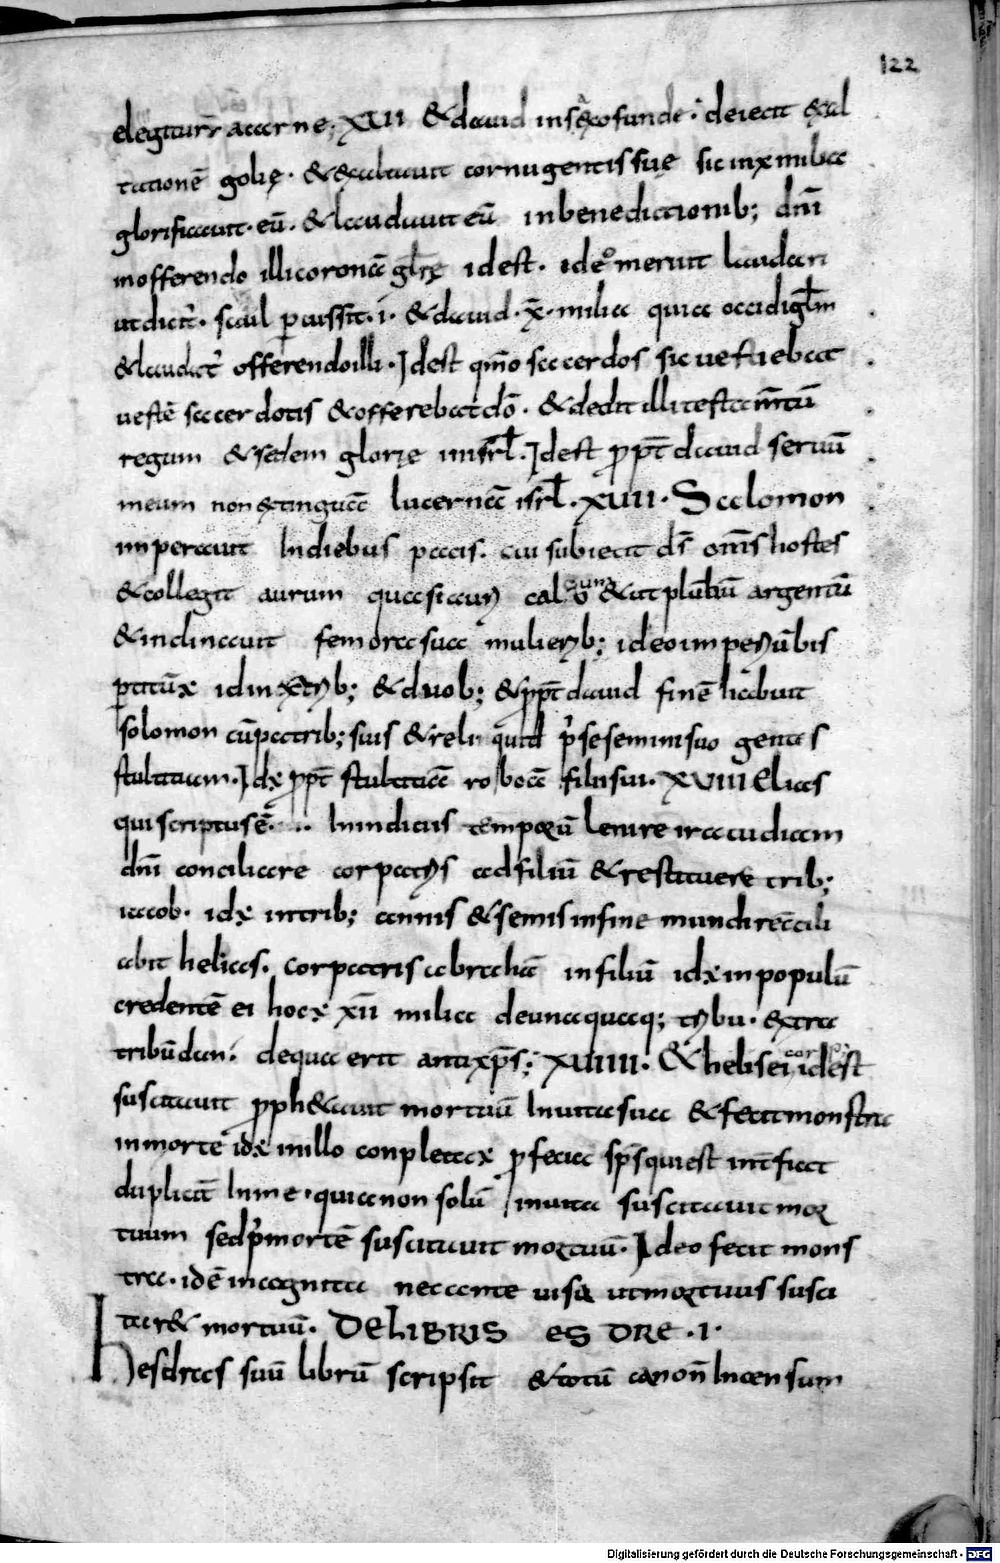 122
elegitur a carne; XVII &dauid insęcofunde deiecit ęxal
tationē golię · &ęxaltauit cornu gentis suę sic in x milia
glorificauit · eū · &laudauit eū in benedictionib; dn̄i
in offerendo illi coronā gl̄rę idest · ideo meruit laudari
ut dicit̄ · saul percussit · i · &dauid · x̄ · milia quia occidi gl̄m
&laudat̄ offerendo illi · Idest qm̄o sacerdos sic uestiebat
uestē sacerdotis &offerebat dō · &dedit illi testam̄tū
regum &sedem glorię in isrl̄ · Idest ꝓpt̄ dauid seruū
meum non extinguā lucernā isrl̄ · XVIII · Salomon
imperauit In diebus pacis · cui subiecit ds̄ om̄s hostes
&collegit aurum quasi auri calcum &ut plūbū argentū
&inclinauit femora sua mulierib; ideo imperiū bis
partitū x id in x trib; &duob; &ꝓpt̄ dauid finē habuit
solomon cū patrib; suis &reliquid p̄ se semini suo gentis
stultitiam · Id x ꝓpt̄ stultitiā roboā filii sui · XVIII Elias
qui scriptus ē · In indiciis temporū Lenire iracudiam
dn̄i conciliare cor patris ad filiū &restituere trib;
iacob · id x in trib; annis &semis in fine mundi recōcili
abit helias · cor patris abrahā in filiū id x in populū
credentē ei hoc x xii milia de unaquaq; tribu · extra
tribū dan · de qua erit antixp̄s; XVIIII · &helisei cor idest
suscitauit ꝓph&auit mortuū In uita sua &fecit monstra
in morte id x in illo conpleta x ꝓfecia sps̄ qui est int̄ fiat
duplicat̄ In me · quia non solū in uita suscitauit mor
tuum sed p̄ mortē suscitauit mortuū · Ideo fecit mons
tra · idē incognita necante uisa ut mortuus susci
tar& mortuū · DE LIBRIS ESDRE · I ·
Hesdras suū librū scripsit &totū canon̄ Incensum
Digitalisierung gefördert durch die Deutsche Forschungsgemeinschaft · DFG